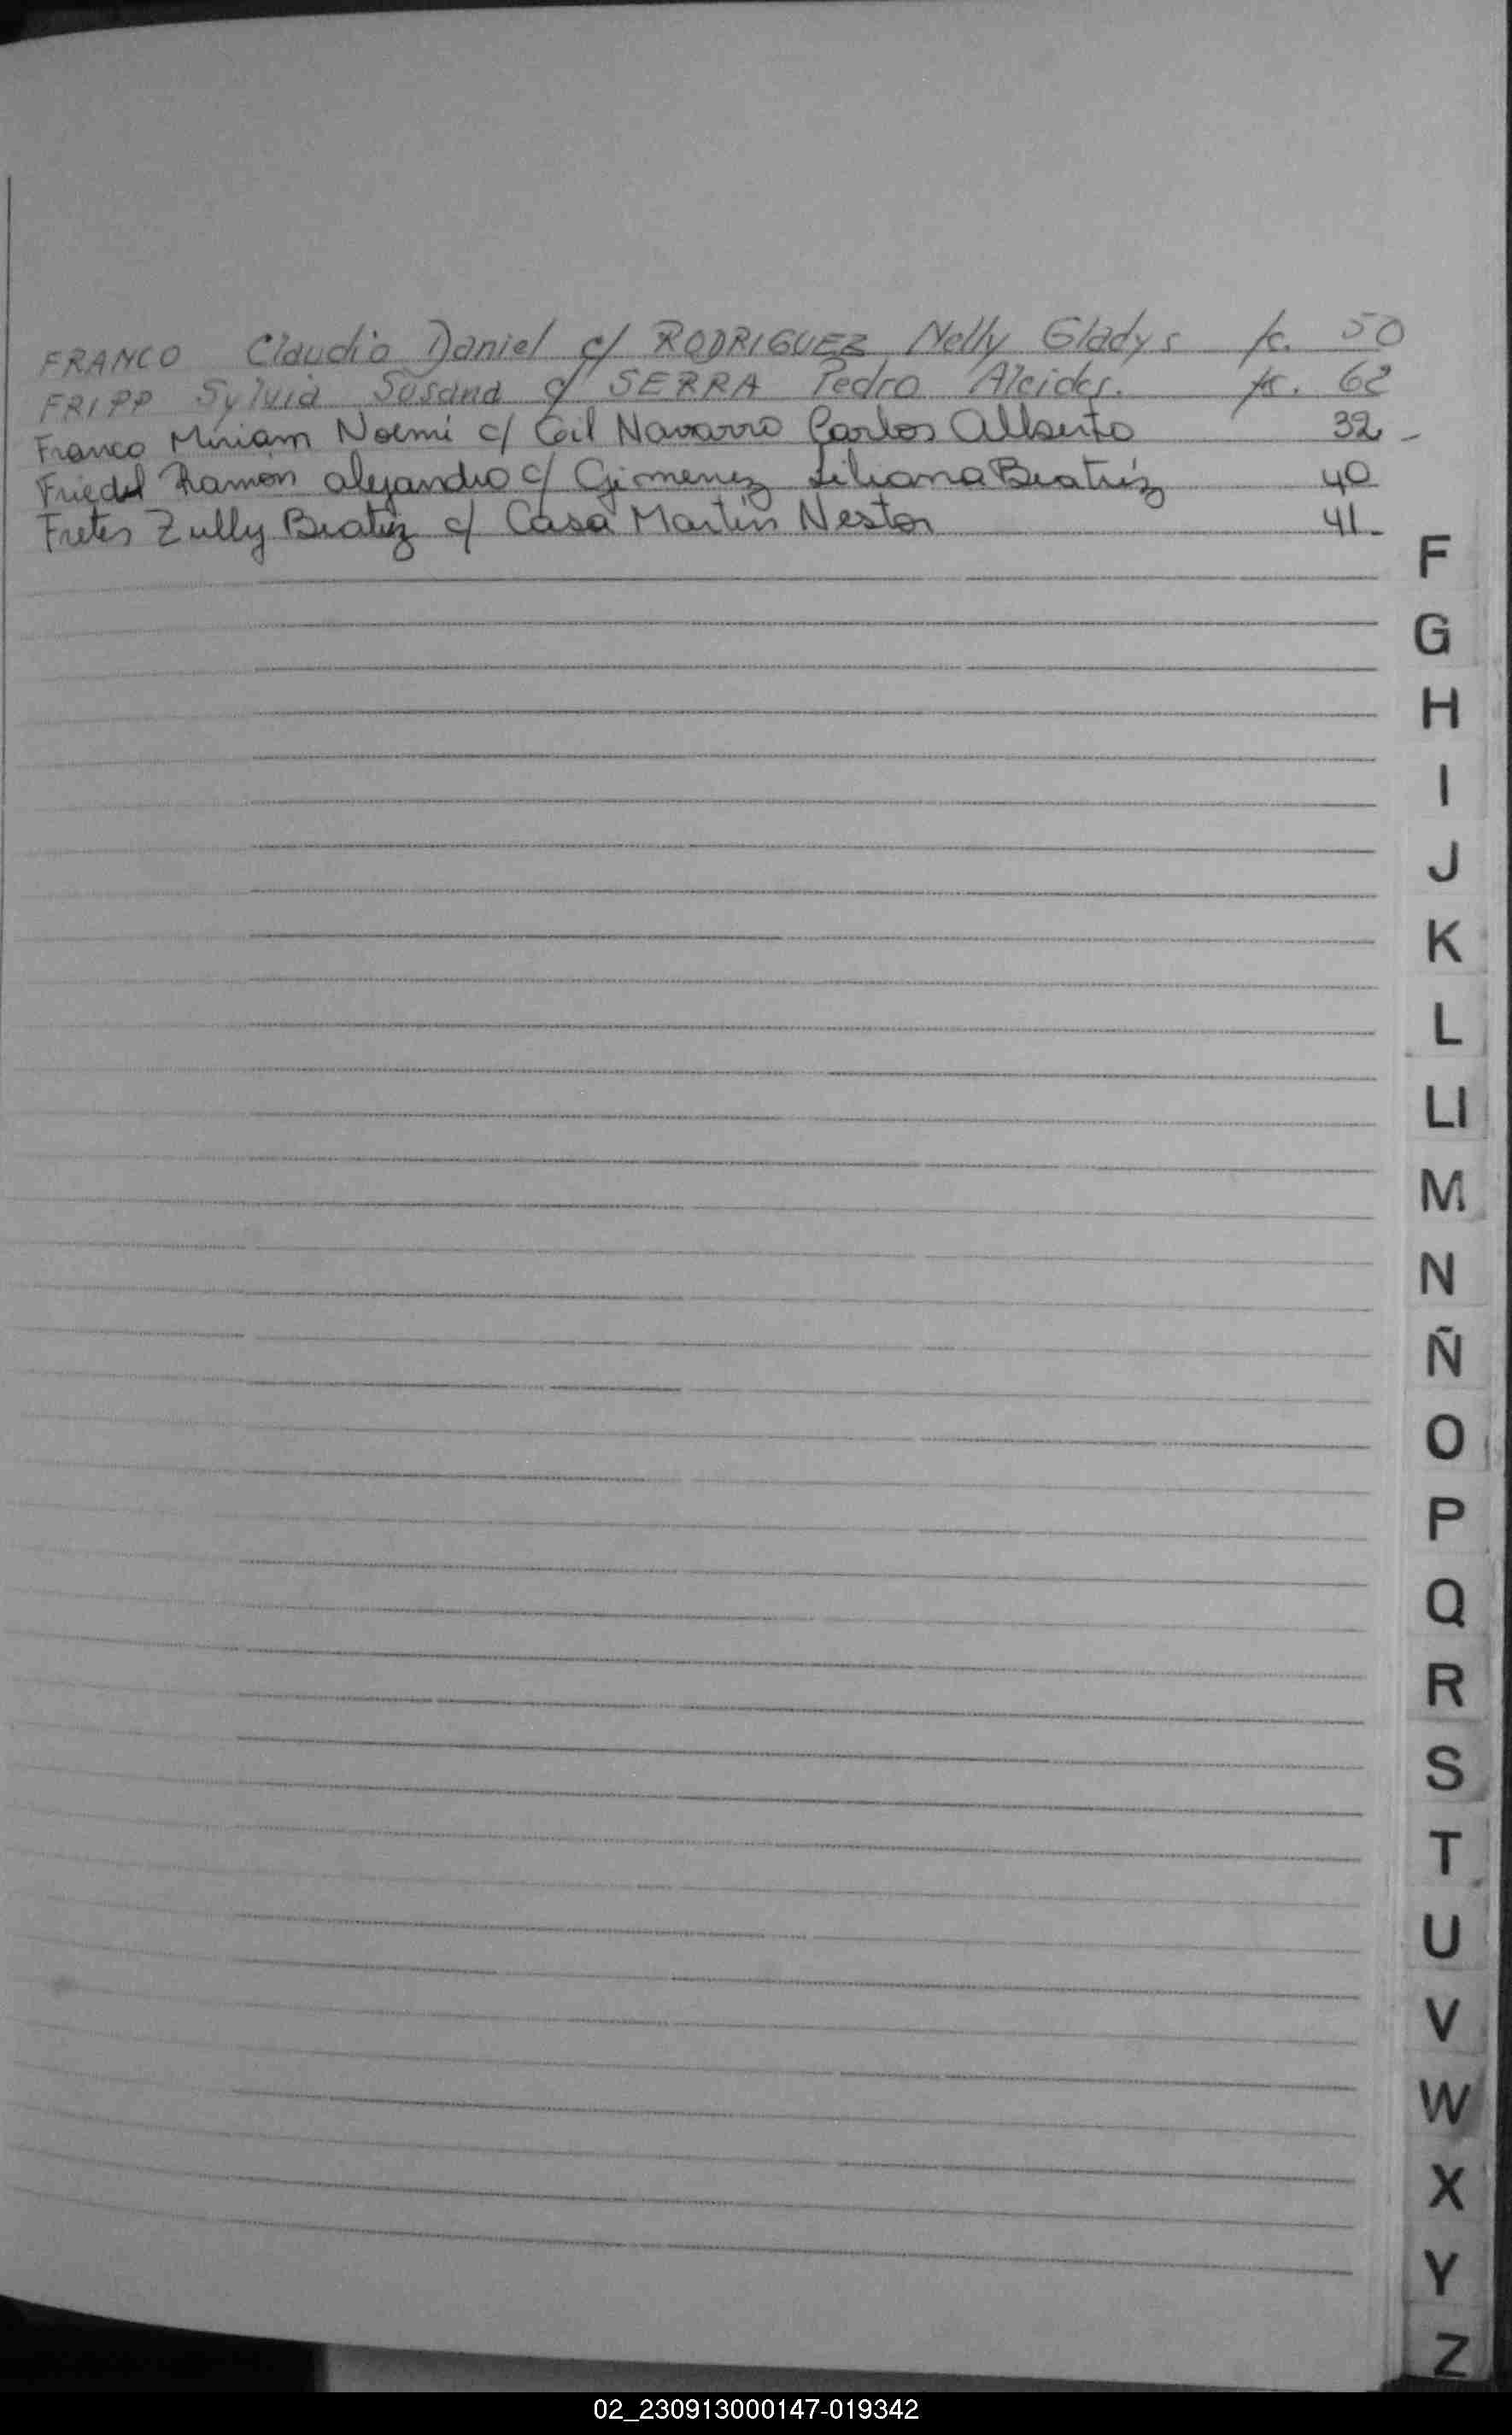 FRANCO Claudio Daniel c/ RODRIGUEZ Nelly Gladys fc. 50
FRIPP Sylvia Susana c/ SERRA Pedro Alcides. fc. 62
Franco Miriam Noemi c/ Gil Navarro Carlos Alberto 32 -
Friedel Ramón Alejandro c/ Gimenez Liliana Beatríz 40
Fretes Zully Beatriz c/ Casa Martín Nestor 41 -
F
G
H
I
J
K
L
Ll
M
N
Ñ
O
P
Q
R
S
T
U
V
W
X
Y
Z
02_230913000147-019342